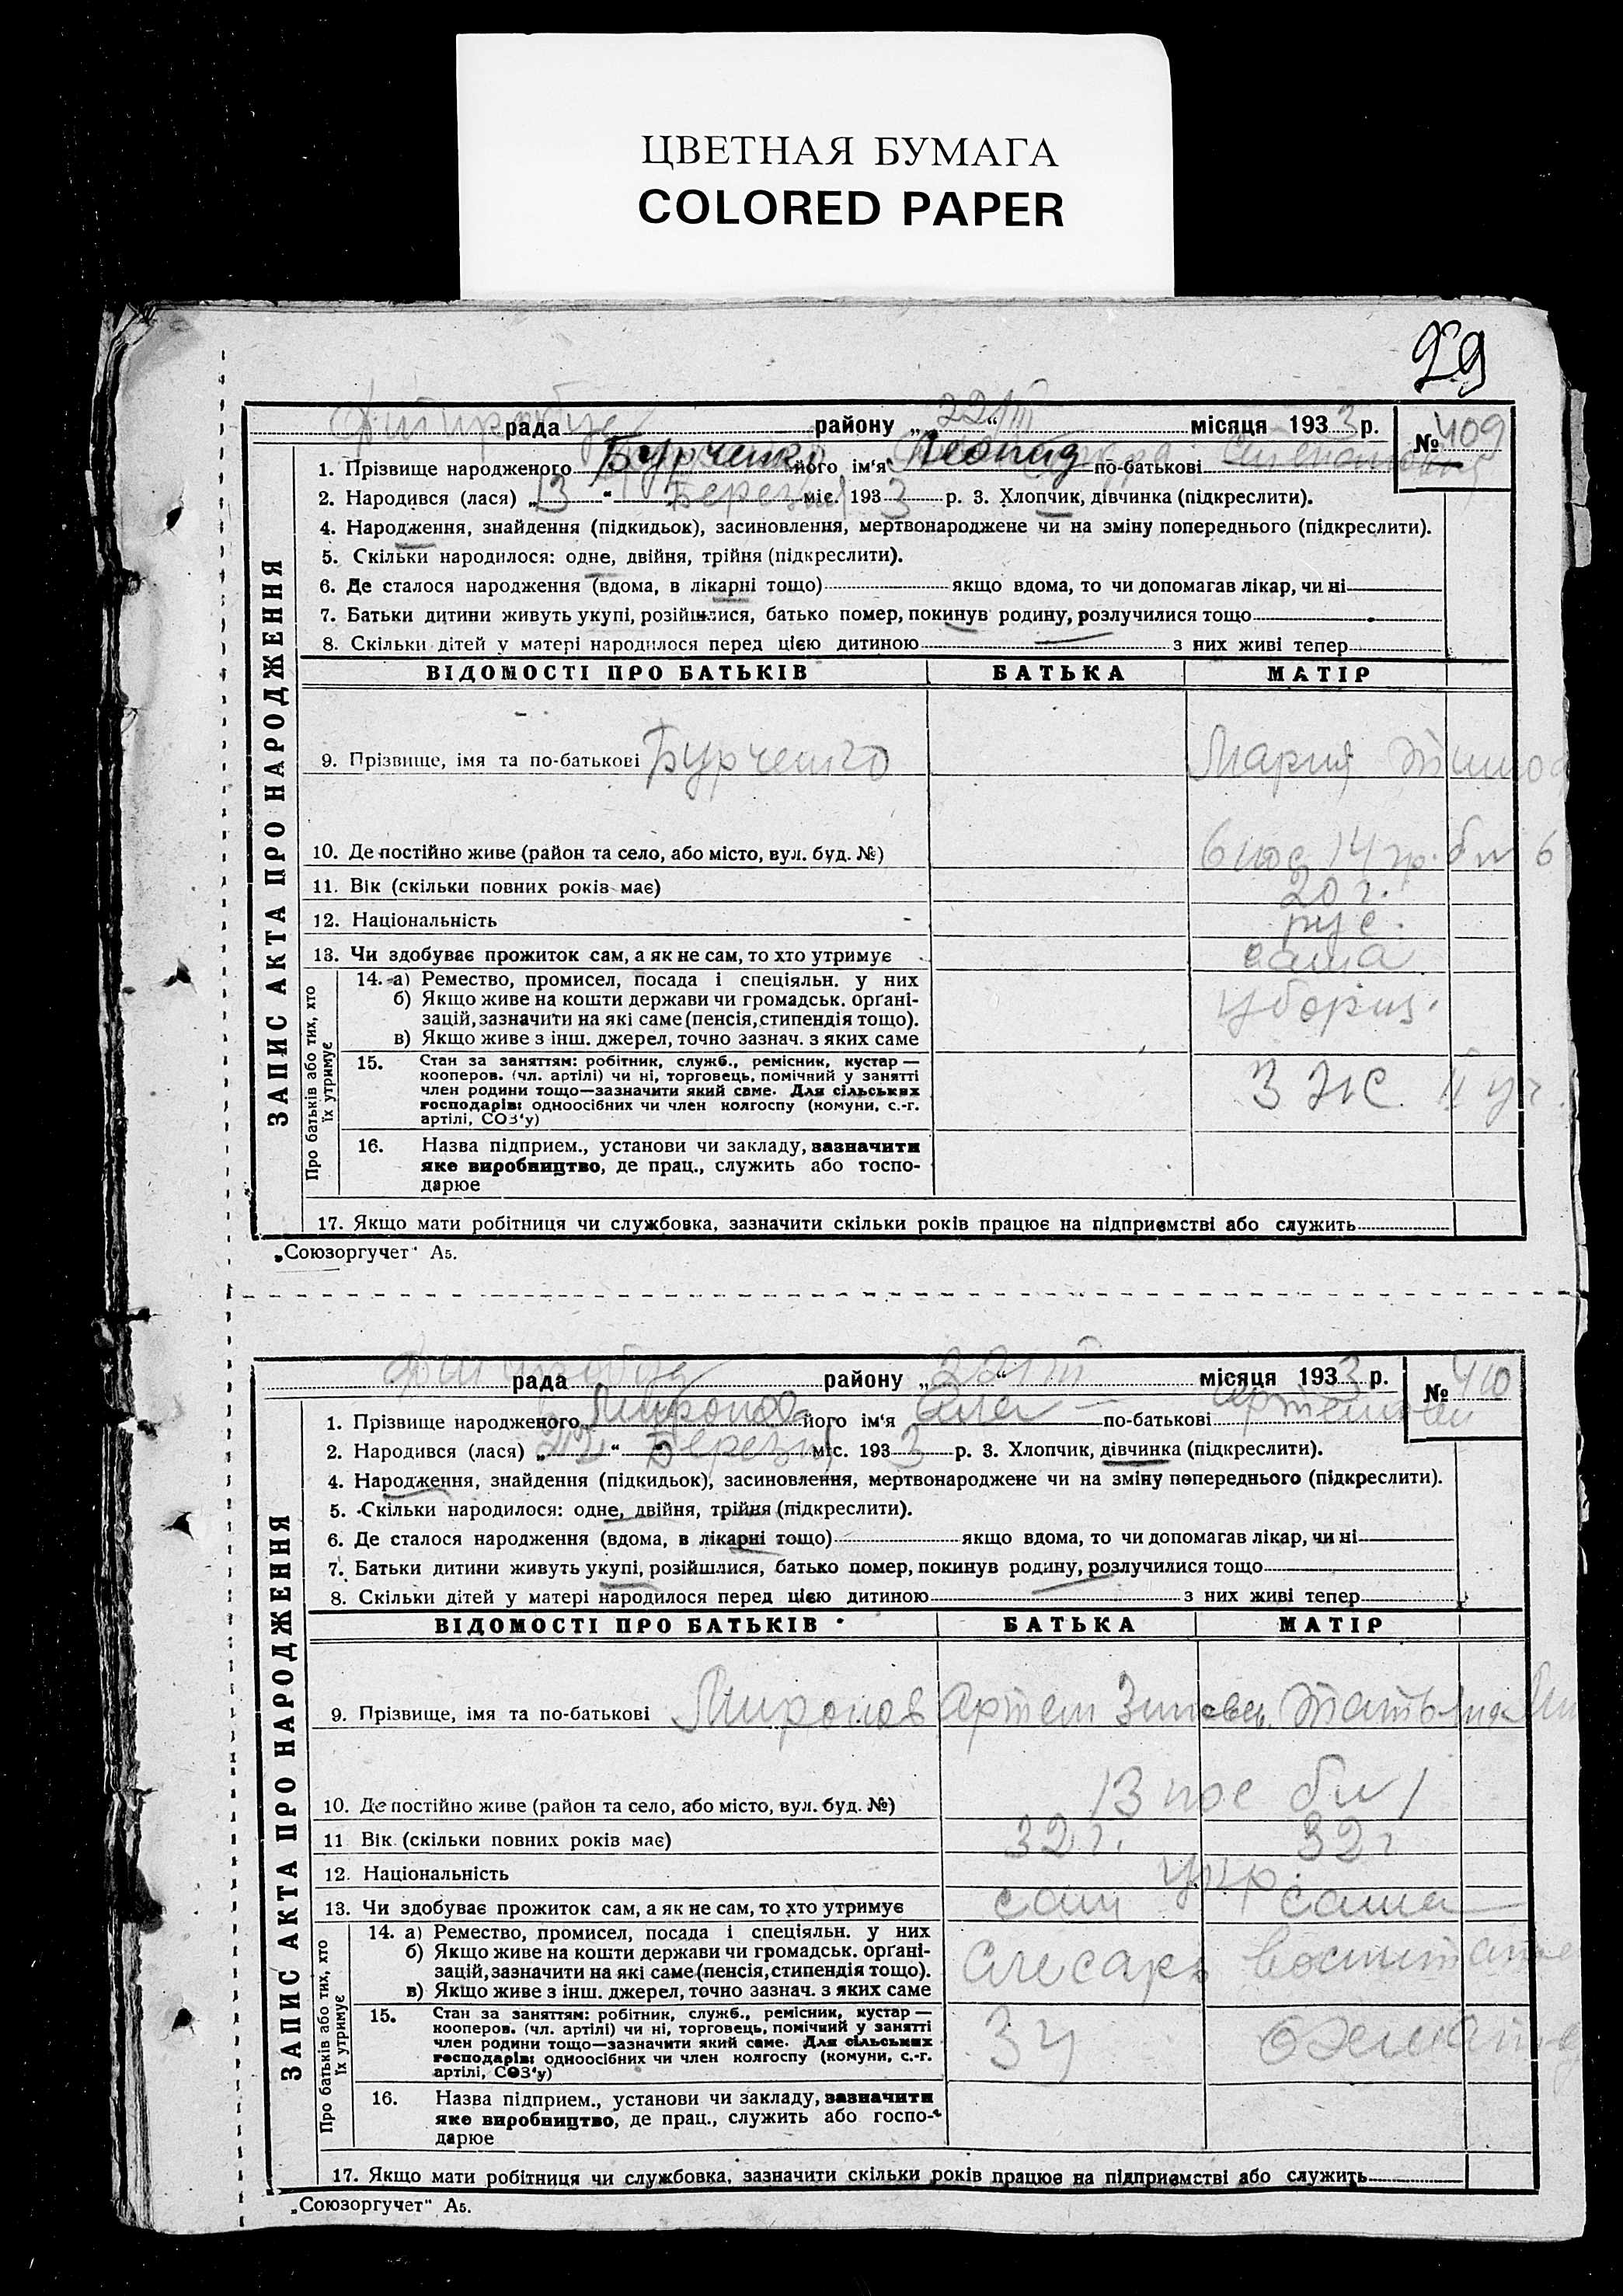 ЦВЕТНАЯ БУМАГА
COLORED PAPER
29
рада района „22 III“ місяця 1933 р. № 409
1. Прізвище народженого Бурченко його ім‘я Леонид по-батькові
2. Народився (лася) „13“ Березня міс. 1933 р. 3. Хлопчик, дівчинка (підкреслити).
4. Народження, знайдення (підкидьок), засиновлення, мертвонароджене чи на зміну попереднього (підкреслити).
5. Скільки народилося: одне, двійня, трійня (підкреслити).
6. Де сталося народження (вдома, в лікарні тощо) якщо вдома, то чи допомагав лікар, чи ні
7. Батьки дитини живуть укупі, розійшлися, батько помер, покинув родину, розлучилися тощо
8. Скільки дітей у матері народилося перед цією дитиною — з них живі тепер
ЗАПИС АКТА ПРО НАРОДЖЕННЯ
ВІДОМОСТІ ПРО БАТЬКІВ БАТЬКА МАТІР
9. Прізвище, імя та по-батькові Бурченко Мария
10. Де постійно живе (район та село, або місто, вул. буд. №) 14 6
11. Вік (скільки повних років має) 20 г.
12. Національність рус.
13. Чи здобуває прожиток сам, а як не сам, то хто утримує сама
Про батьків або тих, хто їх утримує
14. а) Ремество, промисел, посада і спеціяльн. у них
б) Якщо живе на кошти держави чи громадськ. орґані-
зацій, зазначити на які саме (пенсія, стипендія тощо). уборщ.
в) Якщо живе з інш. джерел, точно зазнач. з яких саме
15. Стан за заняттям: робітник, служб., ремісник, кустар —
кооперов. (чл. артілі) чи ні, торговець, помічний у занятті
член родини тощо—зазначити який саме. Для сільських
господарів: одноосібних чи член колгоспу (комуни, с.-г.
артілі, СОЗ‘у)
16. Назва підприєм., установи чи закладу, зазначити
яке виробництво, де прац., служить або госпо-
дарює
17. Якщо мати робітниця чи службовка, зазначити скільки років працює на підприємстві або служить
„Союзоргучет“ А5.
рада району „22 III“ місяця 1933 р. № 410
1. Прізвище народженого Миронова його ім‘я по-батькові
2. Народився (лася) „22“ Березня міс. 1933 р. 3. Хлопчик, дівчинка (підкреслити).
4. Народження, знайдення (підкидьок), засиновлення, мертвонароджене чи на зміну попереднього (підкреслити).
5. Скільки народилося: одне, двійня, трійня (підкреслити).
6. Де сталося народження (вдома, в лікарні тощо) якщо вдома, то чи допомагав лікар, чи ні
7. Батьки дитини живуть укупі, розійшлися, батько помер, покинув родину, розлучилися тощо
8. Скільки дітей у матері народилося перед цією дитиною з них живі тепер
ЗАПИС АКТА ПРО НАРОДЖЕННЯ
ВІДОМОСТІ ПРО БАТЬКІВ БАТЬКА МАТІР
9. Прізвище, імя та по-батькові Миронов Артем Татьяна
10. Де постійно живе (район та село, або місто, вул. буд. №) 13 пос бл 1
11 Вік (скільки повних років має) 32 г. 32 г
12. Національність укр.
13. Чи здобуває прожиток сам, а як не сам, то хто утримує сам сама
Про батьків або тих, хто їх утримує
14. а) Ремество, промисел, посада і спеціяльн. у них
б) Якщо живе на кошти держави чи громадськ. орґані-
зацій, зазначити на які саме (пенсія, стипендія тощо). Слесарь
в) Якщо живе з інш. джерел, точно зазнач. з яких саме
15. Стан за заняттям: робітник, служб., ремісник, кустар —
кооперов. (чл. артілі) чи ні, торговець, помічний у занятті
член родини тощо—зазначити який саме. Для сільських
господарів: одноосібних чи член колгоспу (комуни, с.-г.
артілі, СОЗ‘у)
16. Назва підприєм., установи чи закладу, зазначити
яке виробництво, де прац., служить або госпо-
дарює
17. Якщо мати робітниця чи службовка, зазначити скільки років працює на підприємстві або служить
„Союзоргучет“ А5.